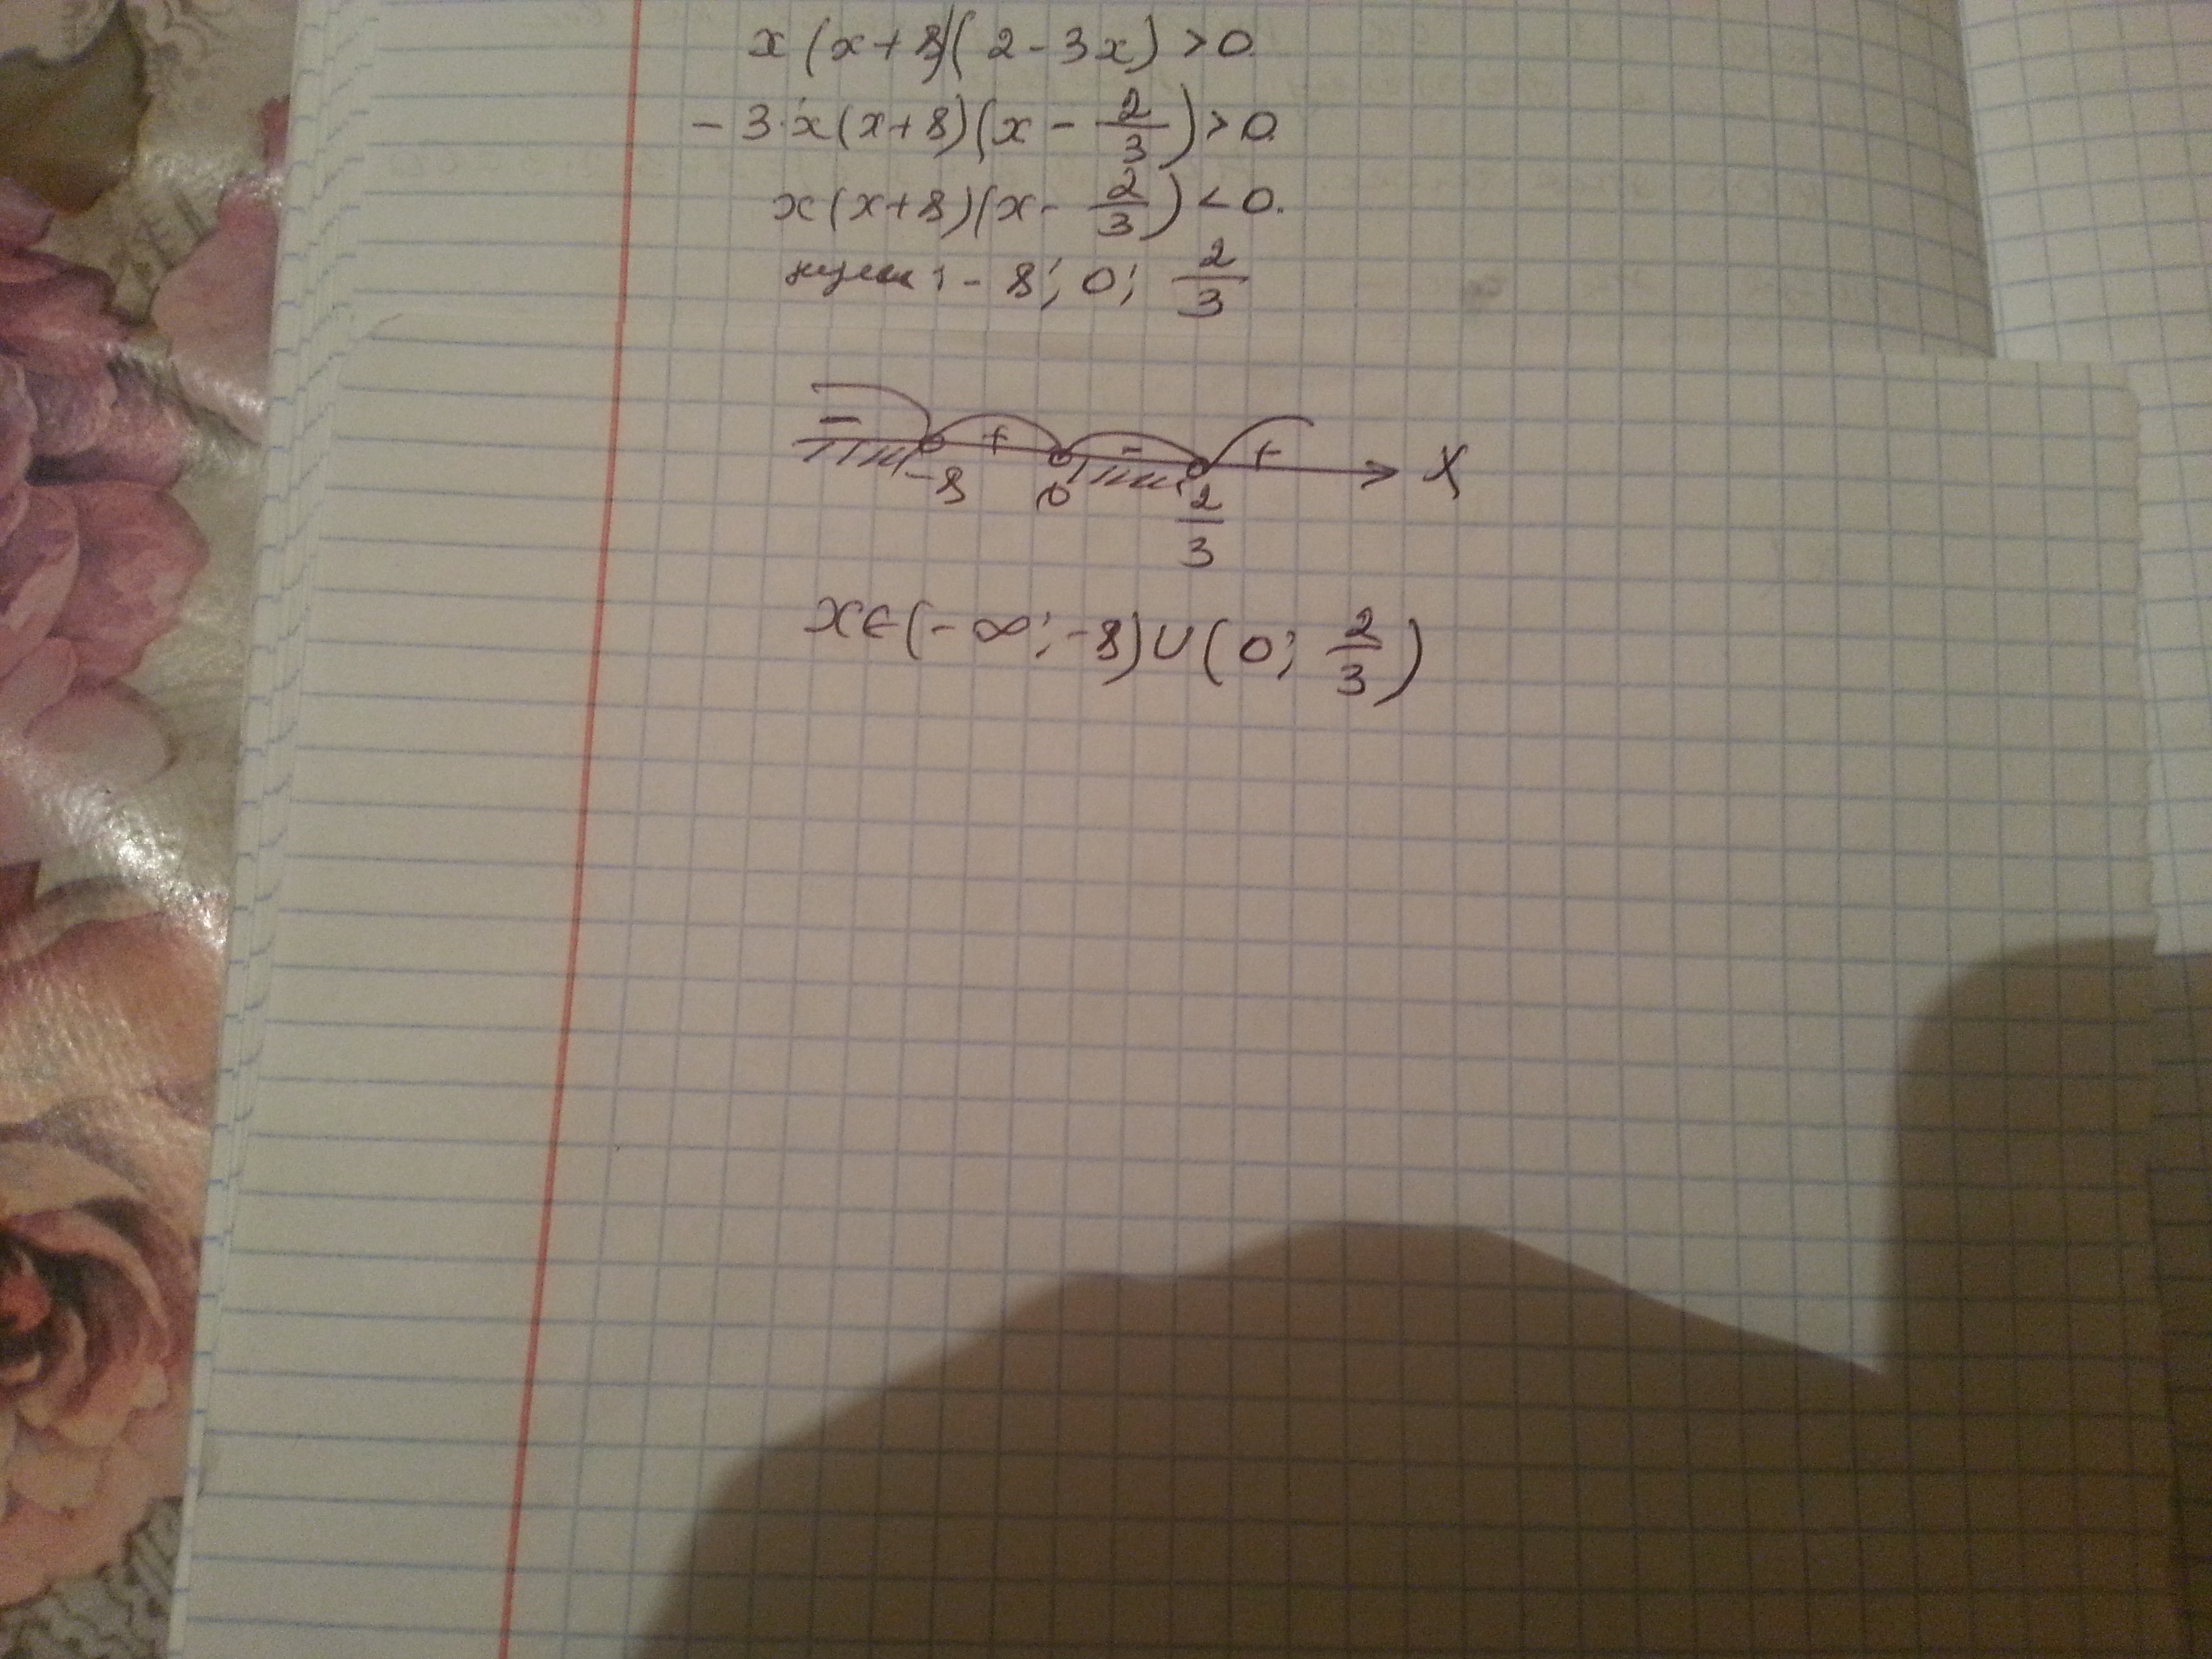 x(x+8)(2-3x)>0.
-3·x(x+8)(x-2/3)>0.
x(x+8)(x-2/3)<0.
нули: -8; 0; 2/3
- + - +
-8 0 2/3 X
x∈(-∞;-8)∪(0; 2/3)